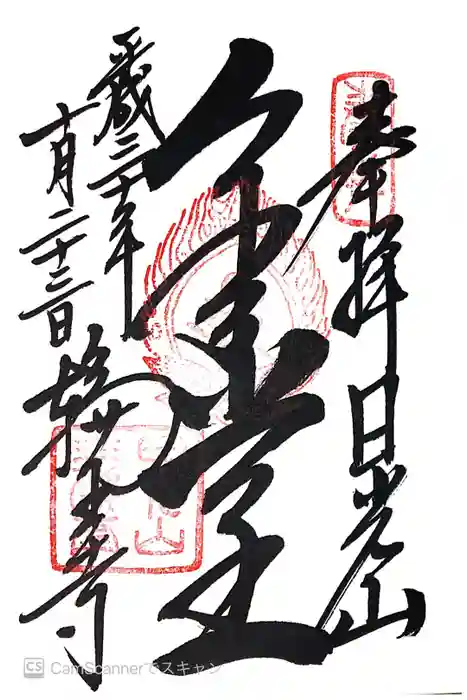 奉拝 日光山
金堂
平成三十年
十月二十三日 輪王寺
CS CamScannerでスキャン